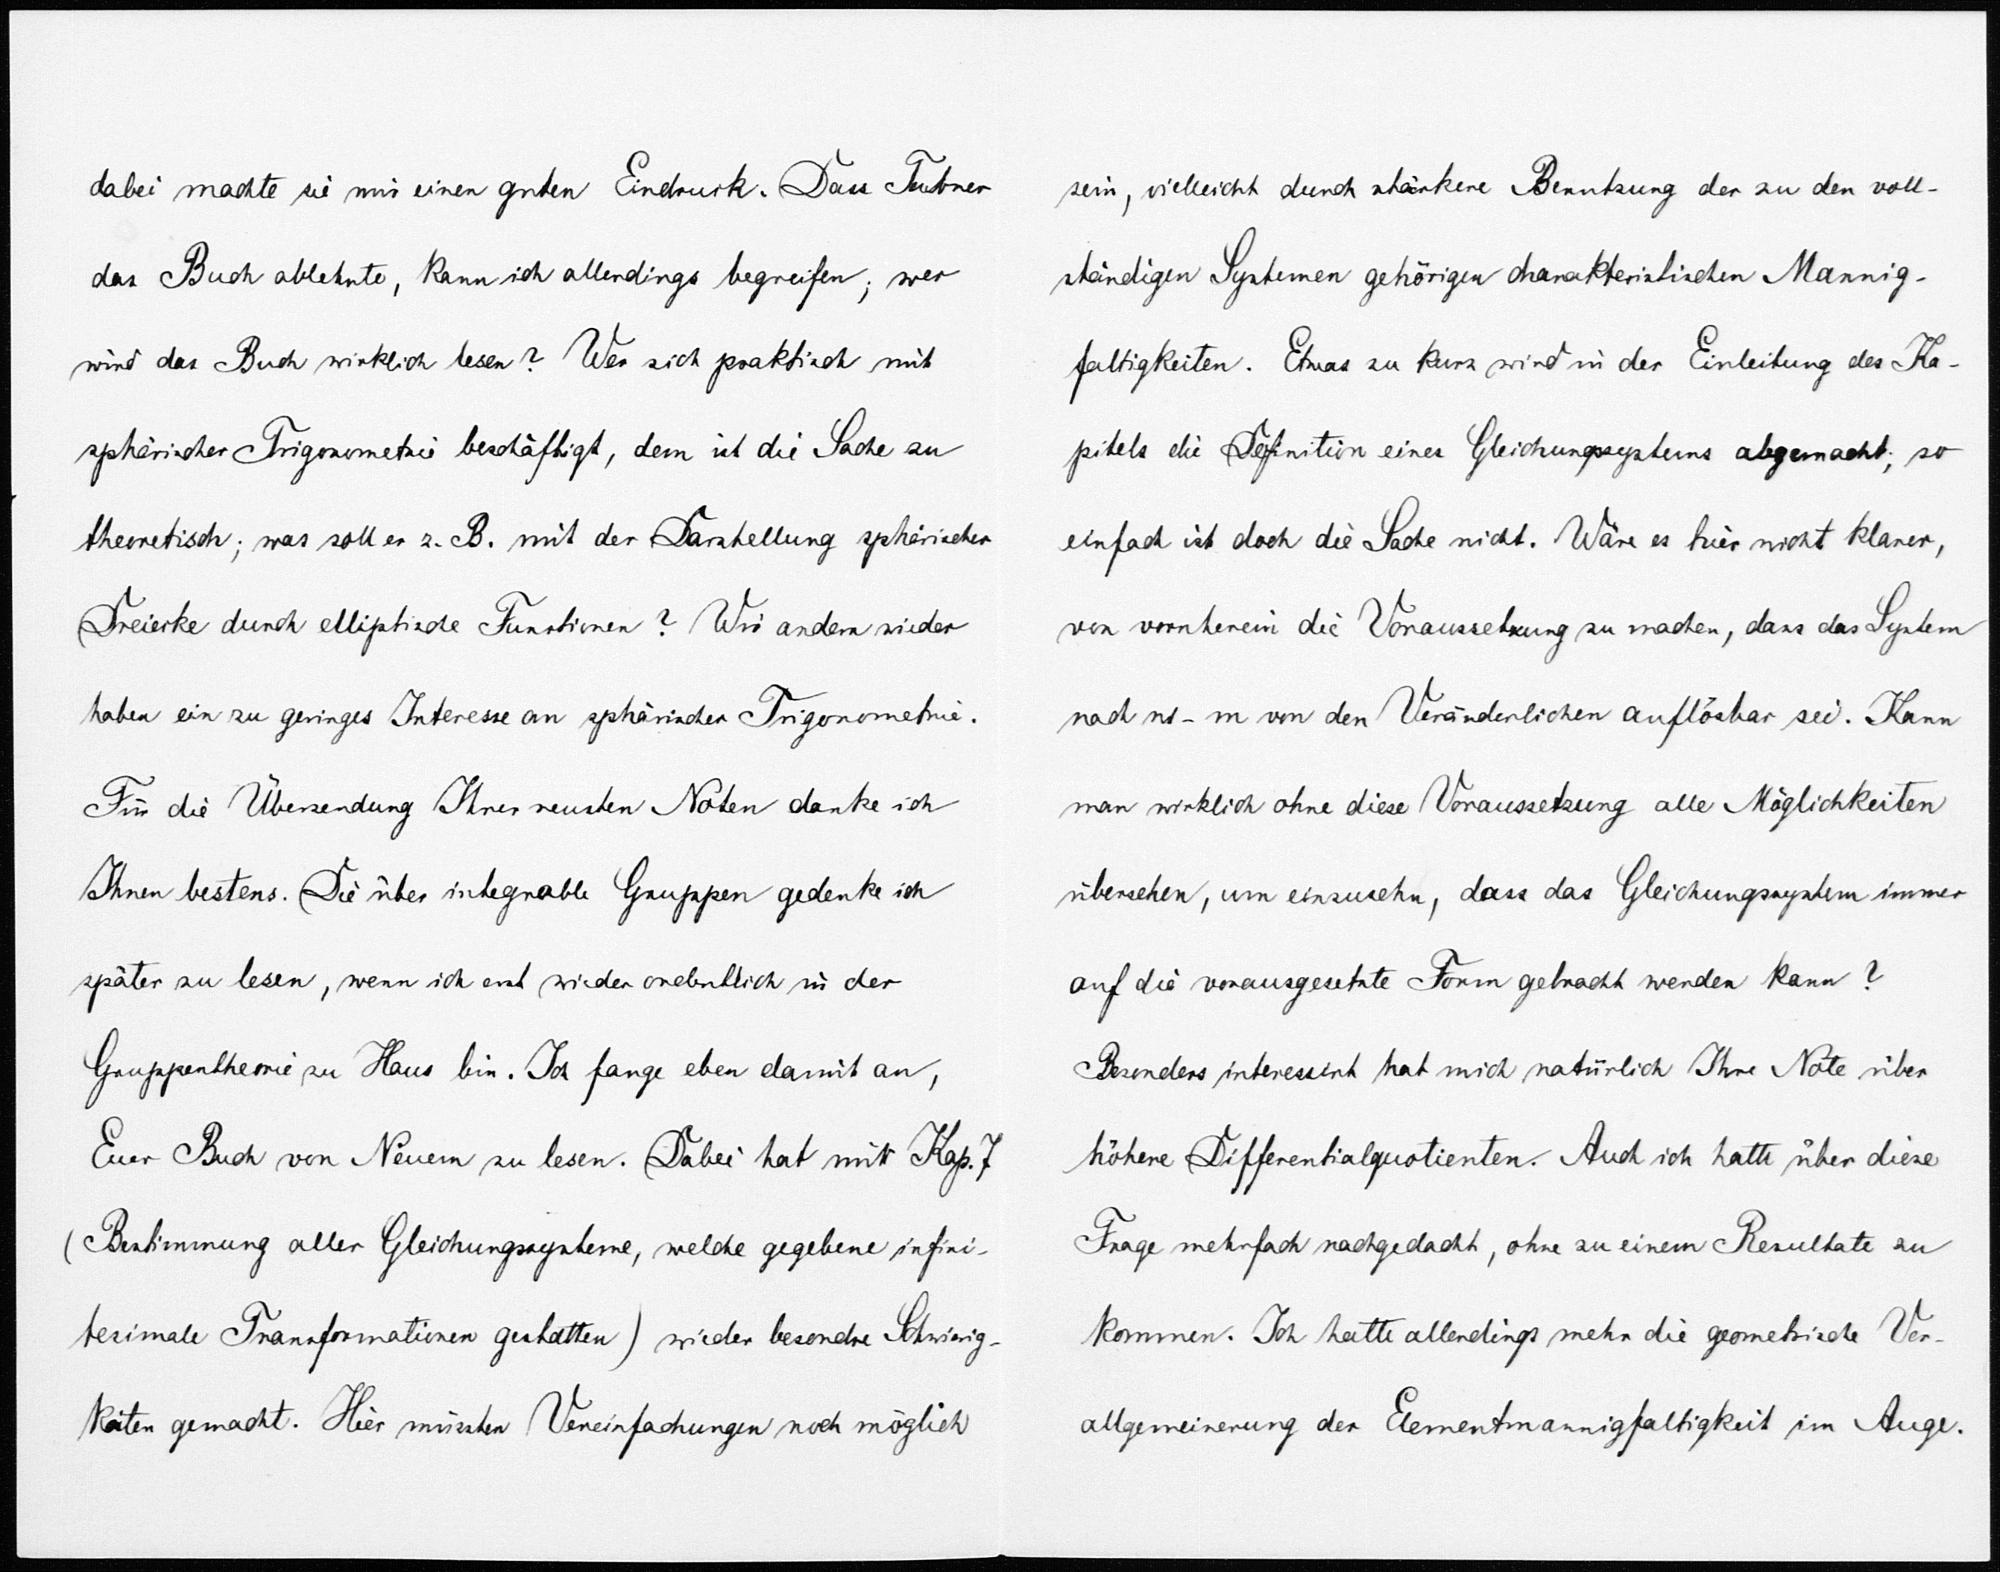 dabei machte sie mir einen guten Eindruck. Dass Teubner
das Buch ablehnte, kann ich allerdings begreifen; wer
wird das Buch wirklich lesen? Wer sich praktisch mit
sphärischer Trigonometrie beschäftigt, dem ist die Sache zu
theoretisch; was soll er z. B. mit der Darstellung sphärischer
Dreiecke durch elliptische Functionen? Wir andern wieder
haben ein zu geringes Interesse an sphärischer Trigonometrie.
Für die Übersendung Ihrer neusten Noten danke ich
Ihnen bestens. Die über integrable Gruppen gedenke ich
später zu lesen, wenn ich erst wieder ordentlich in der
Gruppentheorie zu Haus bin. Ich fange eben damit an,
Euer Buch von Neuem zu lesen. Dabei hat mir Kap. 7
(Bestimmung aller Gleichungssysteme, welche gegebene infini-
tesimale Transformationen gestatten) wieder besondre Schwierig-
keiten gemacht. Hier müssten Vereinfachungen noch möglich
sein, vielleicht durch stärkere Benutzung der zu den voll-
ständigen Systemen gehörigen charakteristischen Mannig-
faltigkeiten. Etwas zu kurz wird in der Einleitung des Ka-
pitels die Definition eines Gleichungssystems abgemacht; so
einfach ist doch die Sache nicht. Wäre es hier nicht klarer,
von vornherein die Voraussetzung zu machen, dass das System
nach n-m von den Veränderlichen auflösbar sei. Kann
man wirklich ohne diese Voraussetzung alle Möglichkeiten
übersehen, um einzusehn, dass das Gleichungssystem immer
auf die vorausgesetzte Form gebracht werden kann?
Besonders interessirt hat mich natürlich Ihre Note über
höhere Differentialquotienten. Auch ich hatte über diese
Frage mehrfach nachgedacht, ohne zu einem Resultate zu
kommen. Ich hatte allerdings mehr die geometrische Ver-
allgemeinerung der Elementmannigfaltigkeit im Auge.